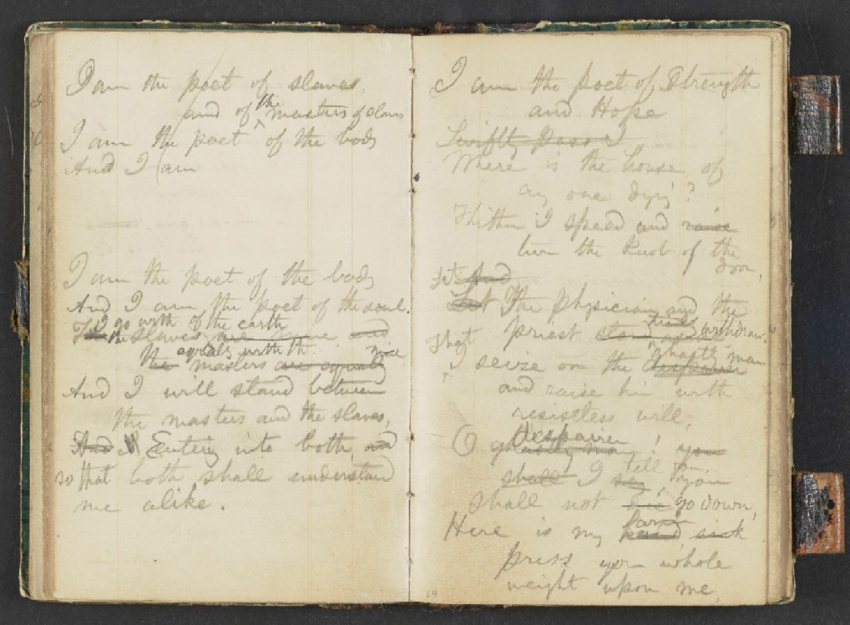 I am the poet of slaves,
and of the masters of slaves
I am the poet of the body
And I am
I am the poet of the body
And I am the poet of the soul.
I go with the slaves of the earth equally with the masters
And I will stand between
the masters and the slaves,
And I Entering into both, and
so that both shall understand
me alike.
I am the poet of Strength
and Hope
Swiftly pass I
Where is the house of
any one dying?
Thither I speed and raise
turn the knob of the
door,
Let the physician and the
priest withdraw,
That I seize on the man
and raise him with
resistless will,
O despairer! you
shall I tell you,
shall not die go down,
Here is my hand sick
press your whole
weight upon me,